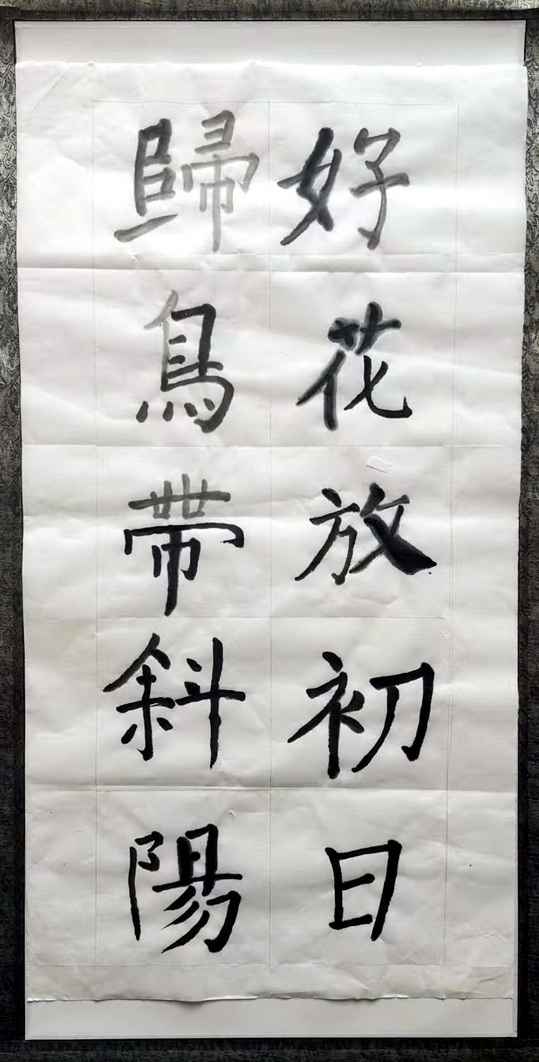 好花放初日
歸鳥帶斜陽